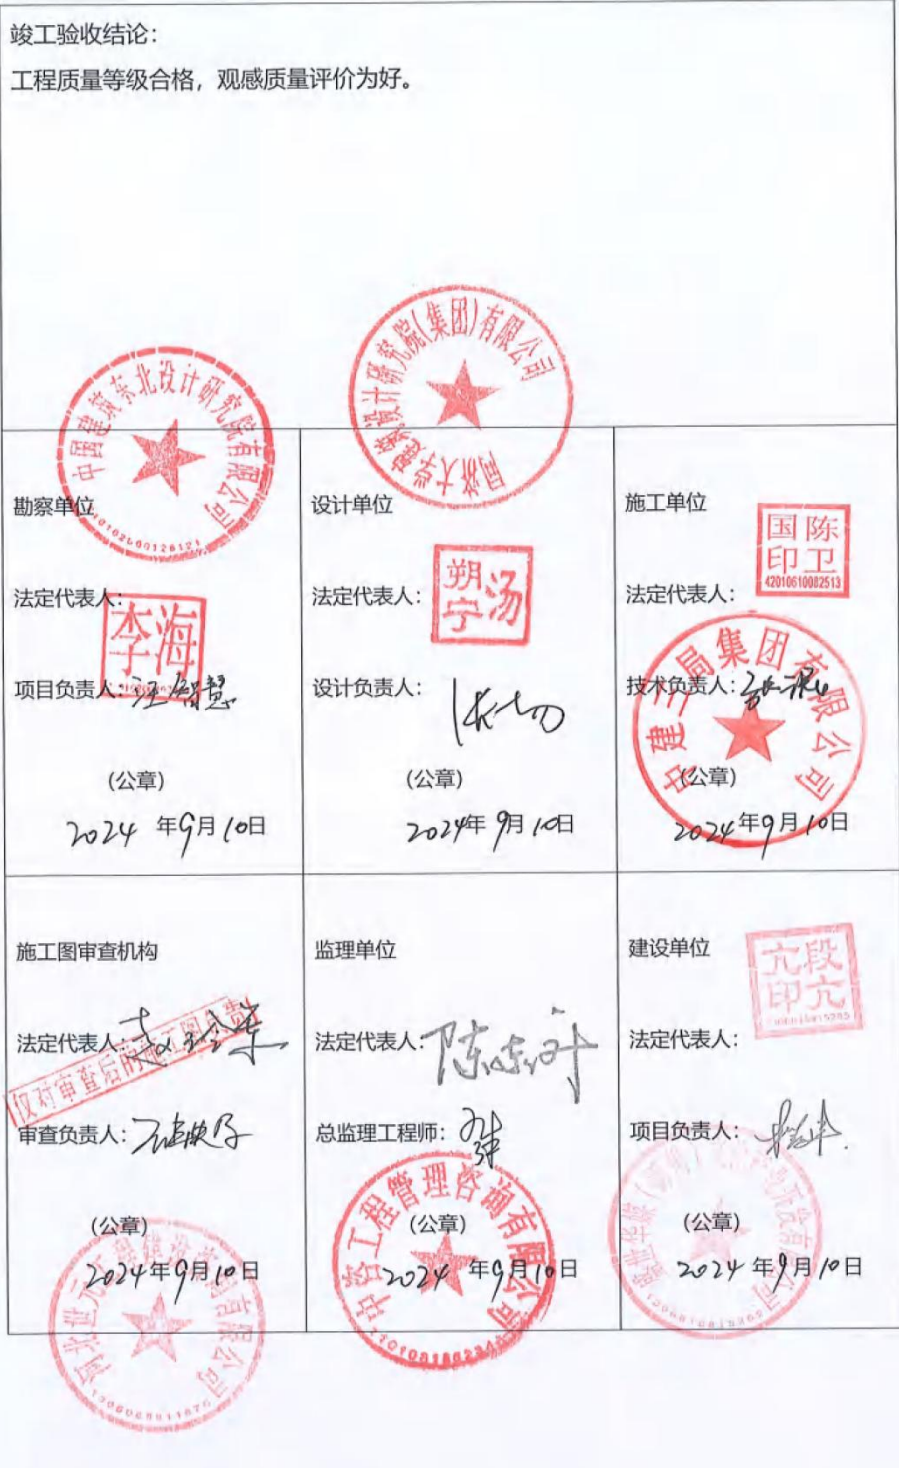 竣工验收结论：
工程质量等级合格，观感质量评价为好。
中国建筑东北设计研究院有限公司
勘察单位
法定代表人：
李海
项目负责人：汪智慧
（公章）
2024 年9月10日
同济大学建筑设计研究院(集团)有限公司
设计单位
法定代表人：
汤朔宁
设计负责人：
（公章）
2024年 9月10日
施工单位
陈卫国印
42010610082513
法定代表人：
中建三局集团有限公司
技术负责人：
（公章）
2024年9月10日
施工图审查机构
法定代表人：
仅对审查后的施工图负责
审查负责人：
（公章）
2024年9月10日
监理单位
法定代表人：
总监理工程师：
中咨工程管理咨询有限公司
（公章）
2024 年9月10日
建设单位
段亢印
法定代表人：
项目负责人：
（公章）
2024 年9月10日